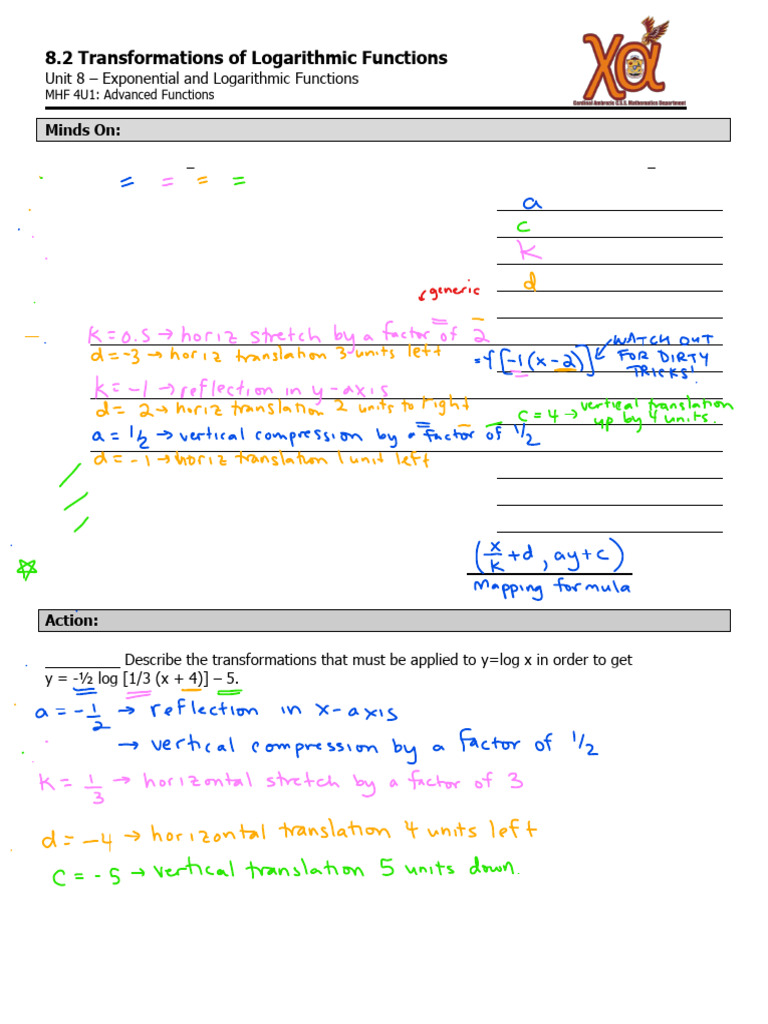 8.2 Transformations of Logarithmic Functions
Unit 8 – Exponential and Logarithmic Functions
MHF 4U1: Advanced Functions
xα
Cardinal Ambrozic C.S.S. Mathematics Department
Minds On:
a
c
k
d
generic
k = 0.5 → horiz stretch by a factor of 2
WATCH OUT
FOR DIRTY
TRICKS!
d = -3 → horiz translation 3 units left
= f[-1(x-2)]
k = -1 → reflection in y-axis
d = 2 → horiz translation 2 units to right
c = 4 → vertical translation
up by 4 units.
a = 1/2 → vertical compression by a factor of 1/2
d = -1 → horiz translation 1 unit left
(x/k + d, ay + c)
Mapping formula
Action:
__________ Describe the transformations that must be applied to y=log x in order to get
y = -½ log [1/3 (x + 4)] – 5.
a = -1/2 → reflection in x-axis
→ vertical compression by a factor of 1/2
k = 1/3 → horizontal stretch by a factor of 3
d = -4 → horizontal translation 4 units left
c = -5 → vertical translation 5 units down.